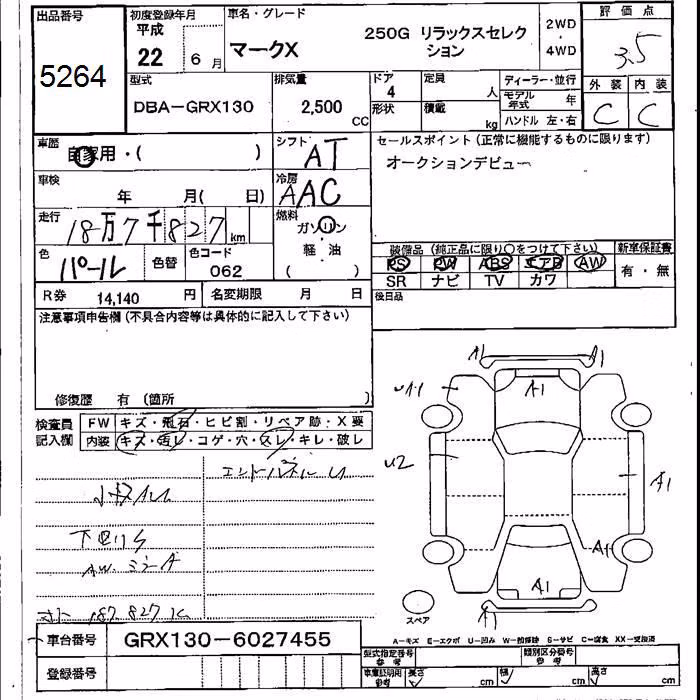 出品番号 初度登録年月 車名・グレード 評価点
5264 平成 22 6月 マークX 250G リラックスセレクション 2WD・4WD 3.5
型式 排気量 ドア 定員 ディーラー・並行 外装 内装
DBA-GRX130 2,500 CC 4 人 モデル年式 年 C C
形状 積載 kg ハンドル 左・右
車歴 自家用・( ) シフト AT セールスポイント(正常に機能するものに限ります)
オークションデビュー
車検 年 月( 日) 冷房 AAC
走行 18万7千827 km 燃料 ガソリン・軽油 ( )
色 パール 色替 色コード 062
装備品(純正品に限り○をつけて下さい) 新車保証書
PS PW ABS エアB AW 有・無
SR ナビ TV カワ
R券 14,140 円 名変期限 月 日 後日品
注意事項申告欄(不具合内容等は具体的に記入して下さい)
修復歴 有(箇所 )
検査員記入欄 FW キズ・飛石・ヒビ割・リペア跡・X要
内装 キズ・汚レ・コゲ・穴・スレ・キレ・破レ
エンドパネルU
小キズU
下回りS
AW ミラーA
187,827K
A1 A1
U1 A1
U2 A1
A1
A1
A1
スペア
A-キズ E-エクボ U-凹み W-凹修跡 S-サビ C-腐食 XX-交換済
車台番号 GRX130-6027455 型式指定番号 参考 類別区分番号 参考
登録番号 車庫証明用 参考 長さ cm 幅 cm 高さ cm